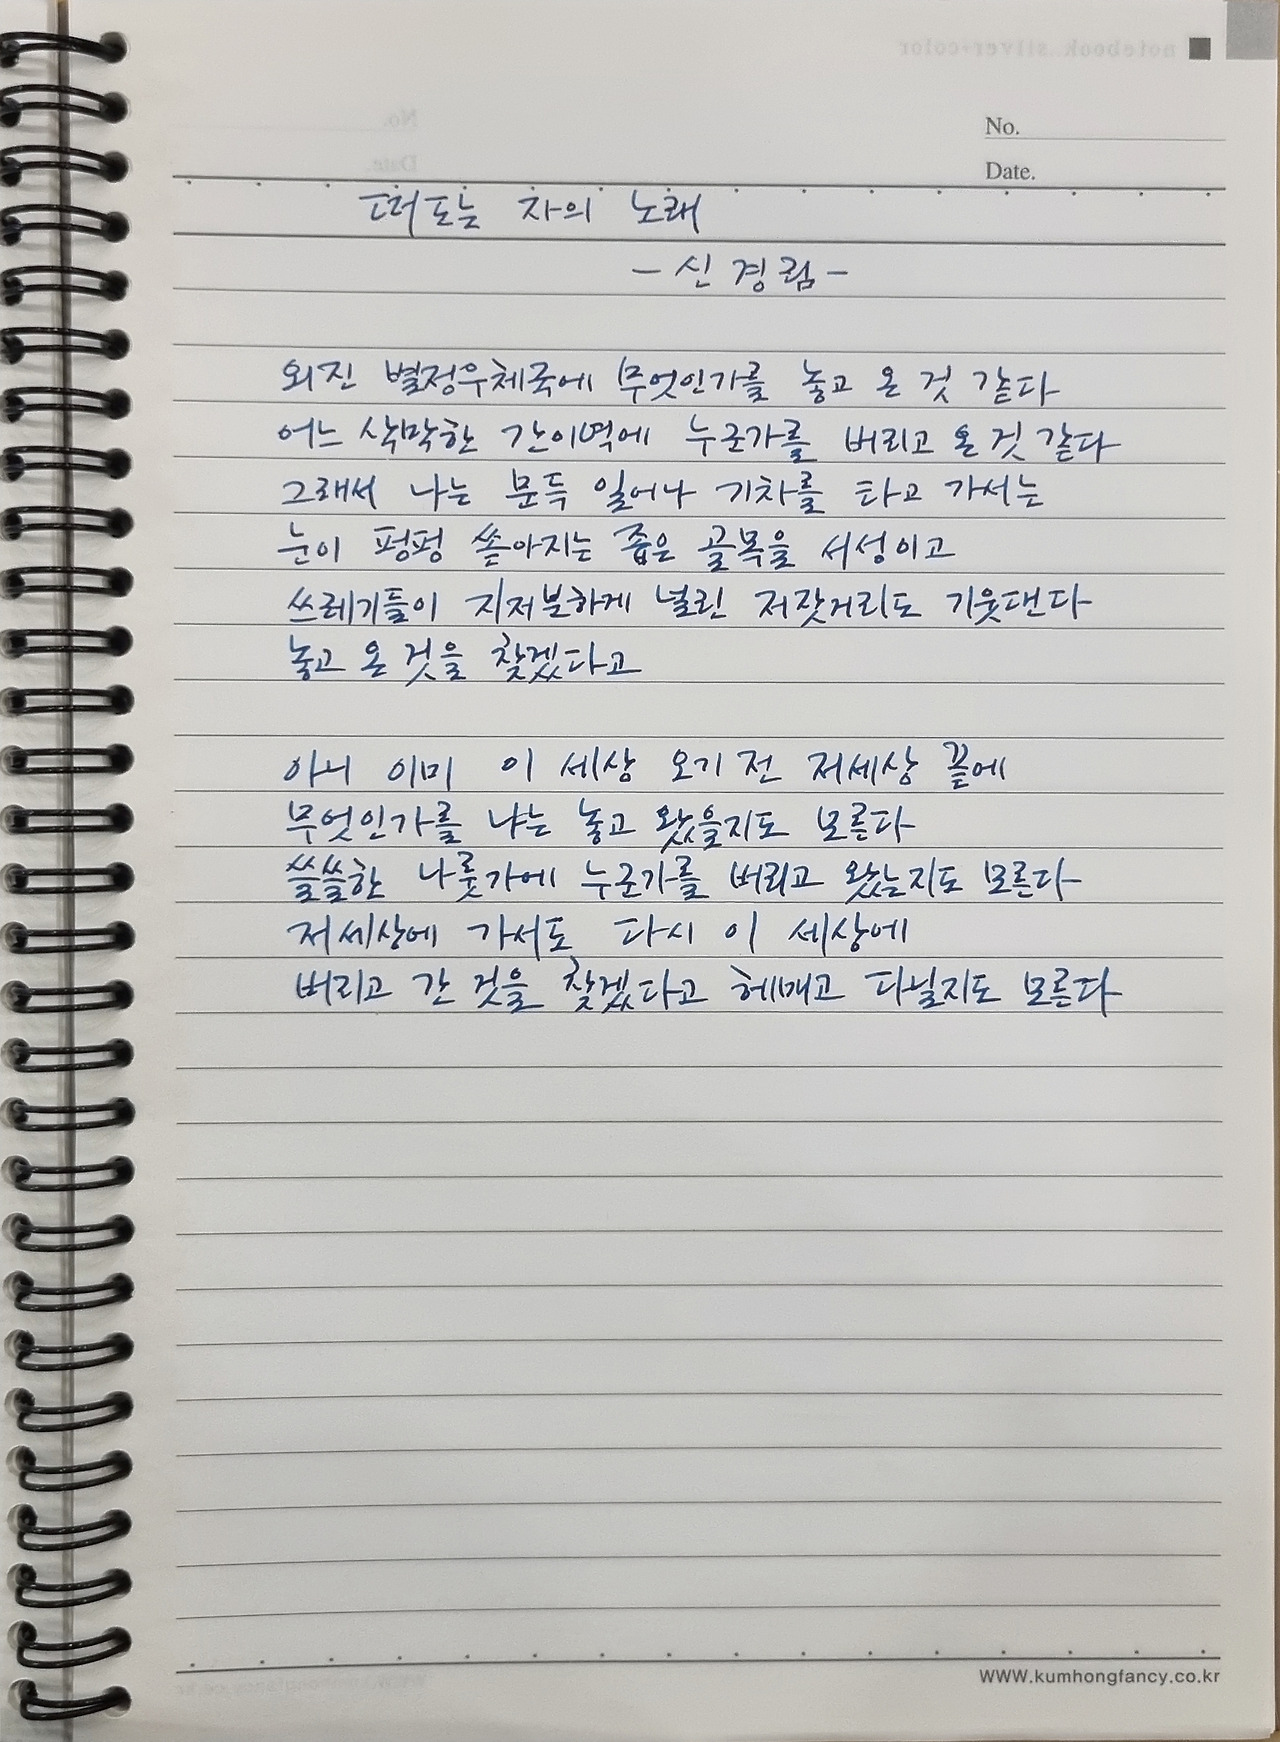 notebook silver+color
No.
Date.
떠도는 자의 노래
- 신경림 -
외진 별정우체국에 무엇인가를 놓고 온 것 같다
어느 삭막한 간이역에 누군가를 버리고 온 것 같다
그래서 나는 문득 일어나 기차를 타고 가서는
눈이 펑펑 쏟아지는 좁은 골목을 서성이고
쓰레기들이 지저분하게 널린 저잣거리도 기웃댄다
놓고 온 것을 찾겠다고
아니 이미 이 세상 오기 전 저세상 끝에
무엇인가를 나는 놓고 왔을지도 모른다
쓸쓸한 나룻가에 누군가를 버리고 왔는지도 모른다
저세상에 가서도 다시 이 세상에
버리고 간 것을 찾겠다고 헤매고 다닐지도 모른다
WWW.kumhongfancy.co.kr